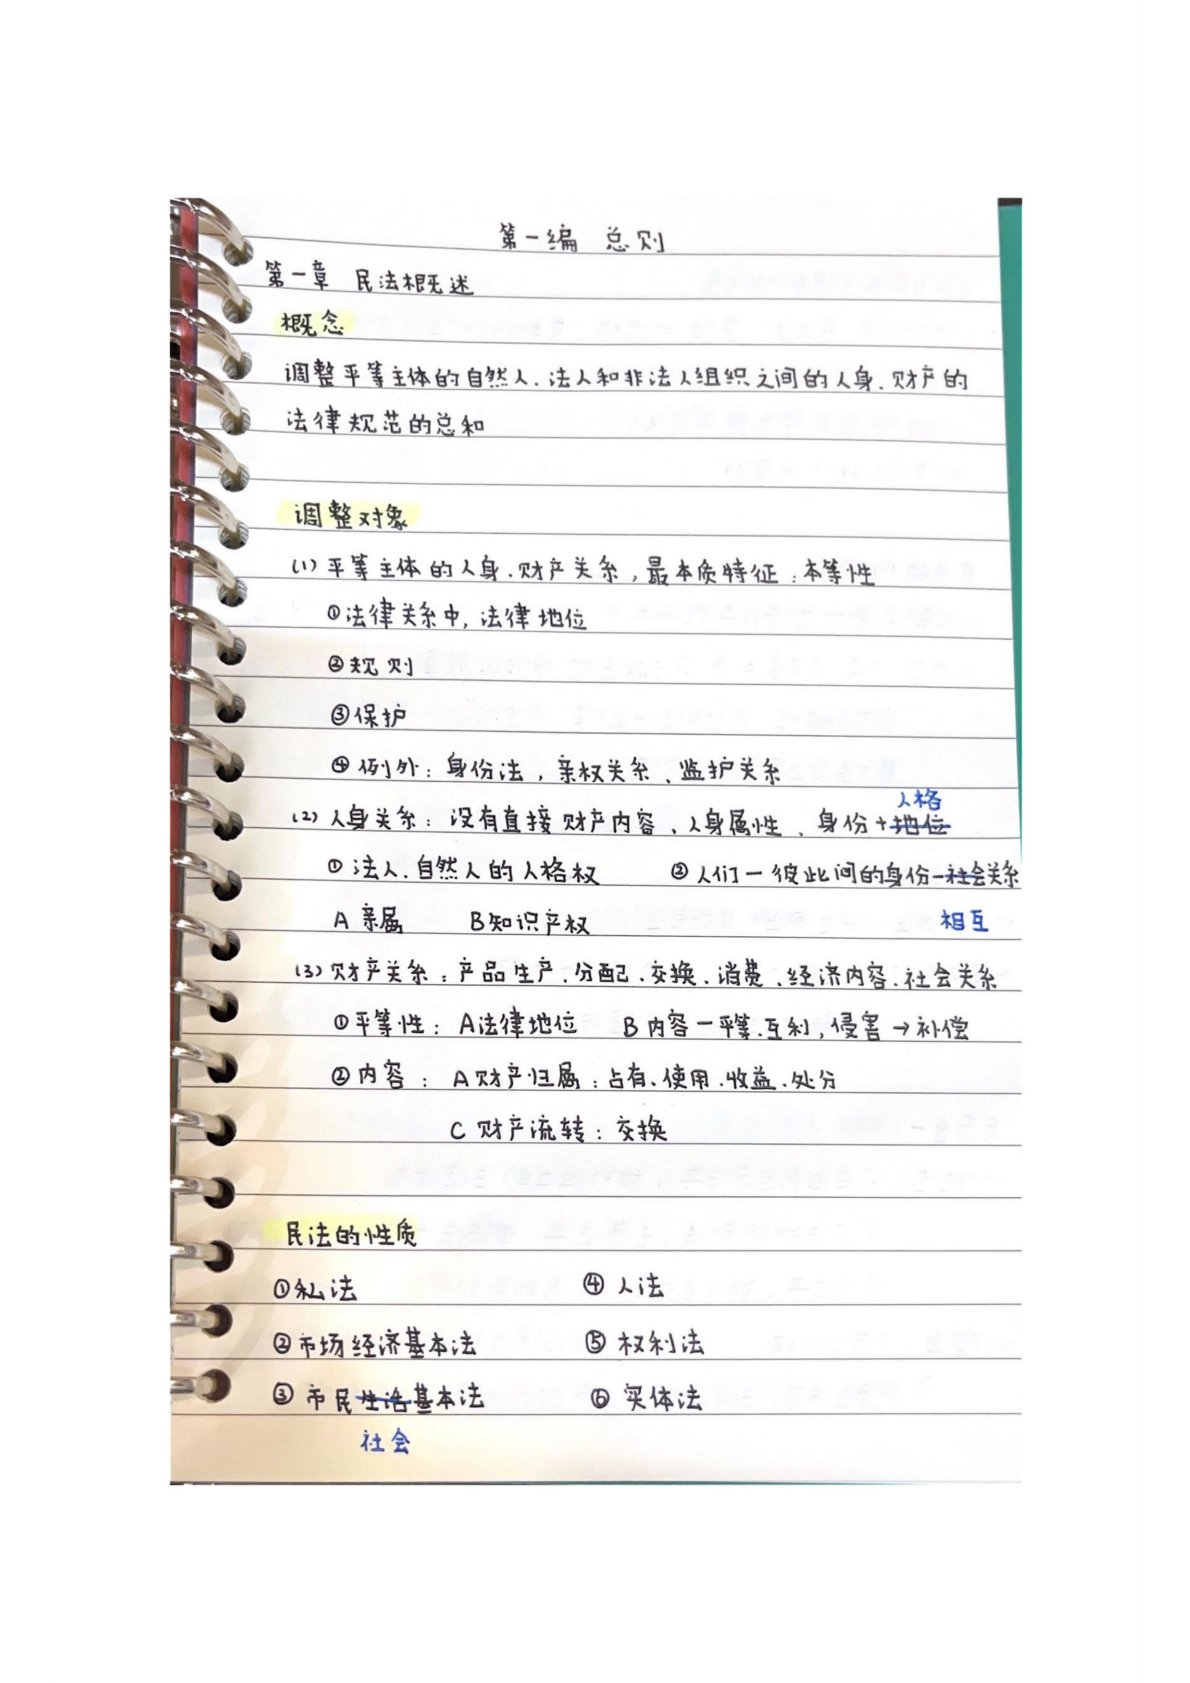 第一编 总则
第一章 民法概述
概念
调整平等主体的自然人、法人和非法人组织之间的人身、财产的
法律规范的总和
调整对象
(1) 平等主体的人身、财产关系,最本质特征:本等性
①法律关系中,法律地位
②规则
③保护
④例外:身份法,亲权关系、监护关系
人格
(2) 人身关系:没有直接财产内容、人身属性、身份+地位
①法人、自然人的人格权 ②人们一彼此间的身份社会关系
A 亲属 B知识产权 相互
(3) 财产关系:产品生产、分配、交换、消费、经济内容、社会关系
①平等性:A法律地位 B内容一平等、互利,侵害→补偿
②内容:A财产归属:占有、使用、收益、处分
C 财产流转:交换
民法的性质
①私法 ④人法
②市场经济基本法 ⑤权利法
③市民生活基本法 ⑥实体法
社会